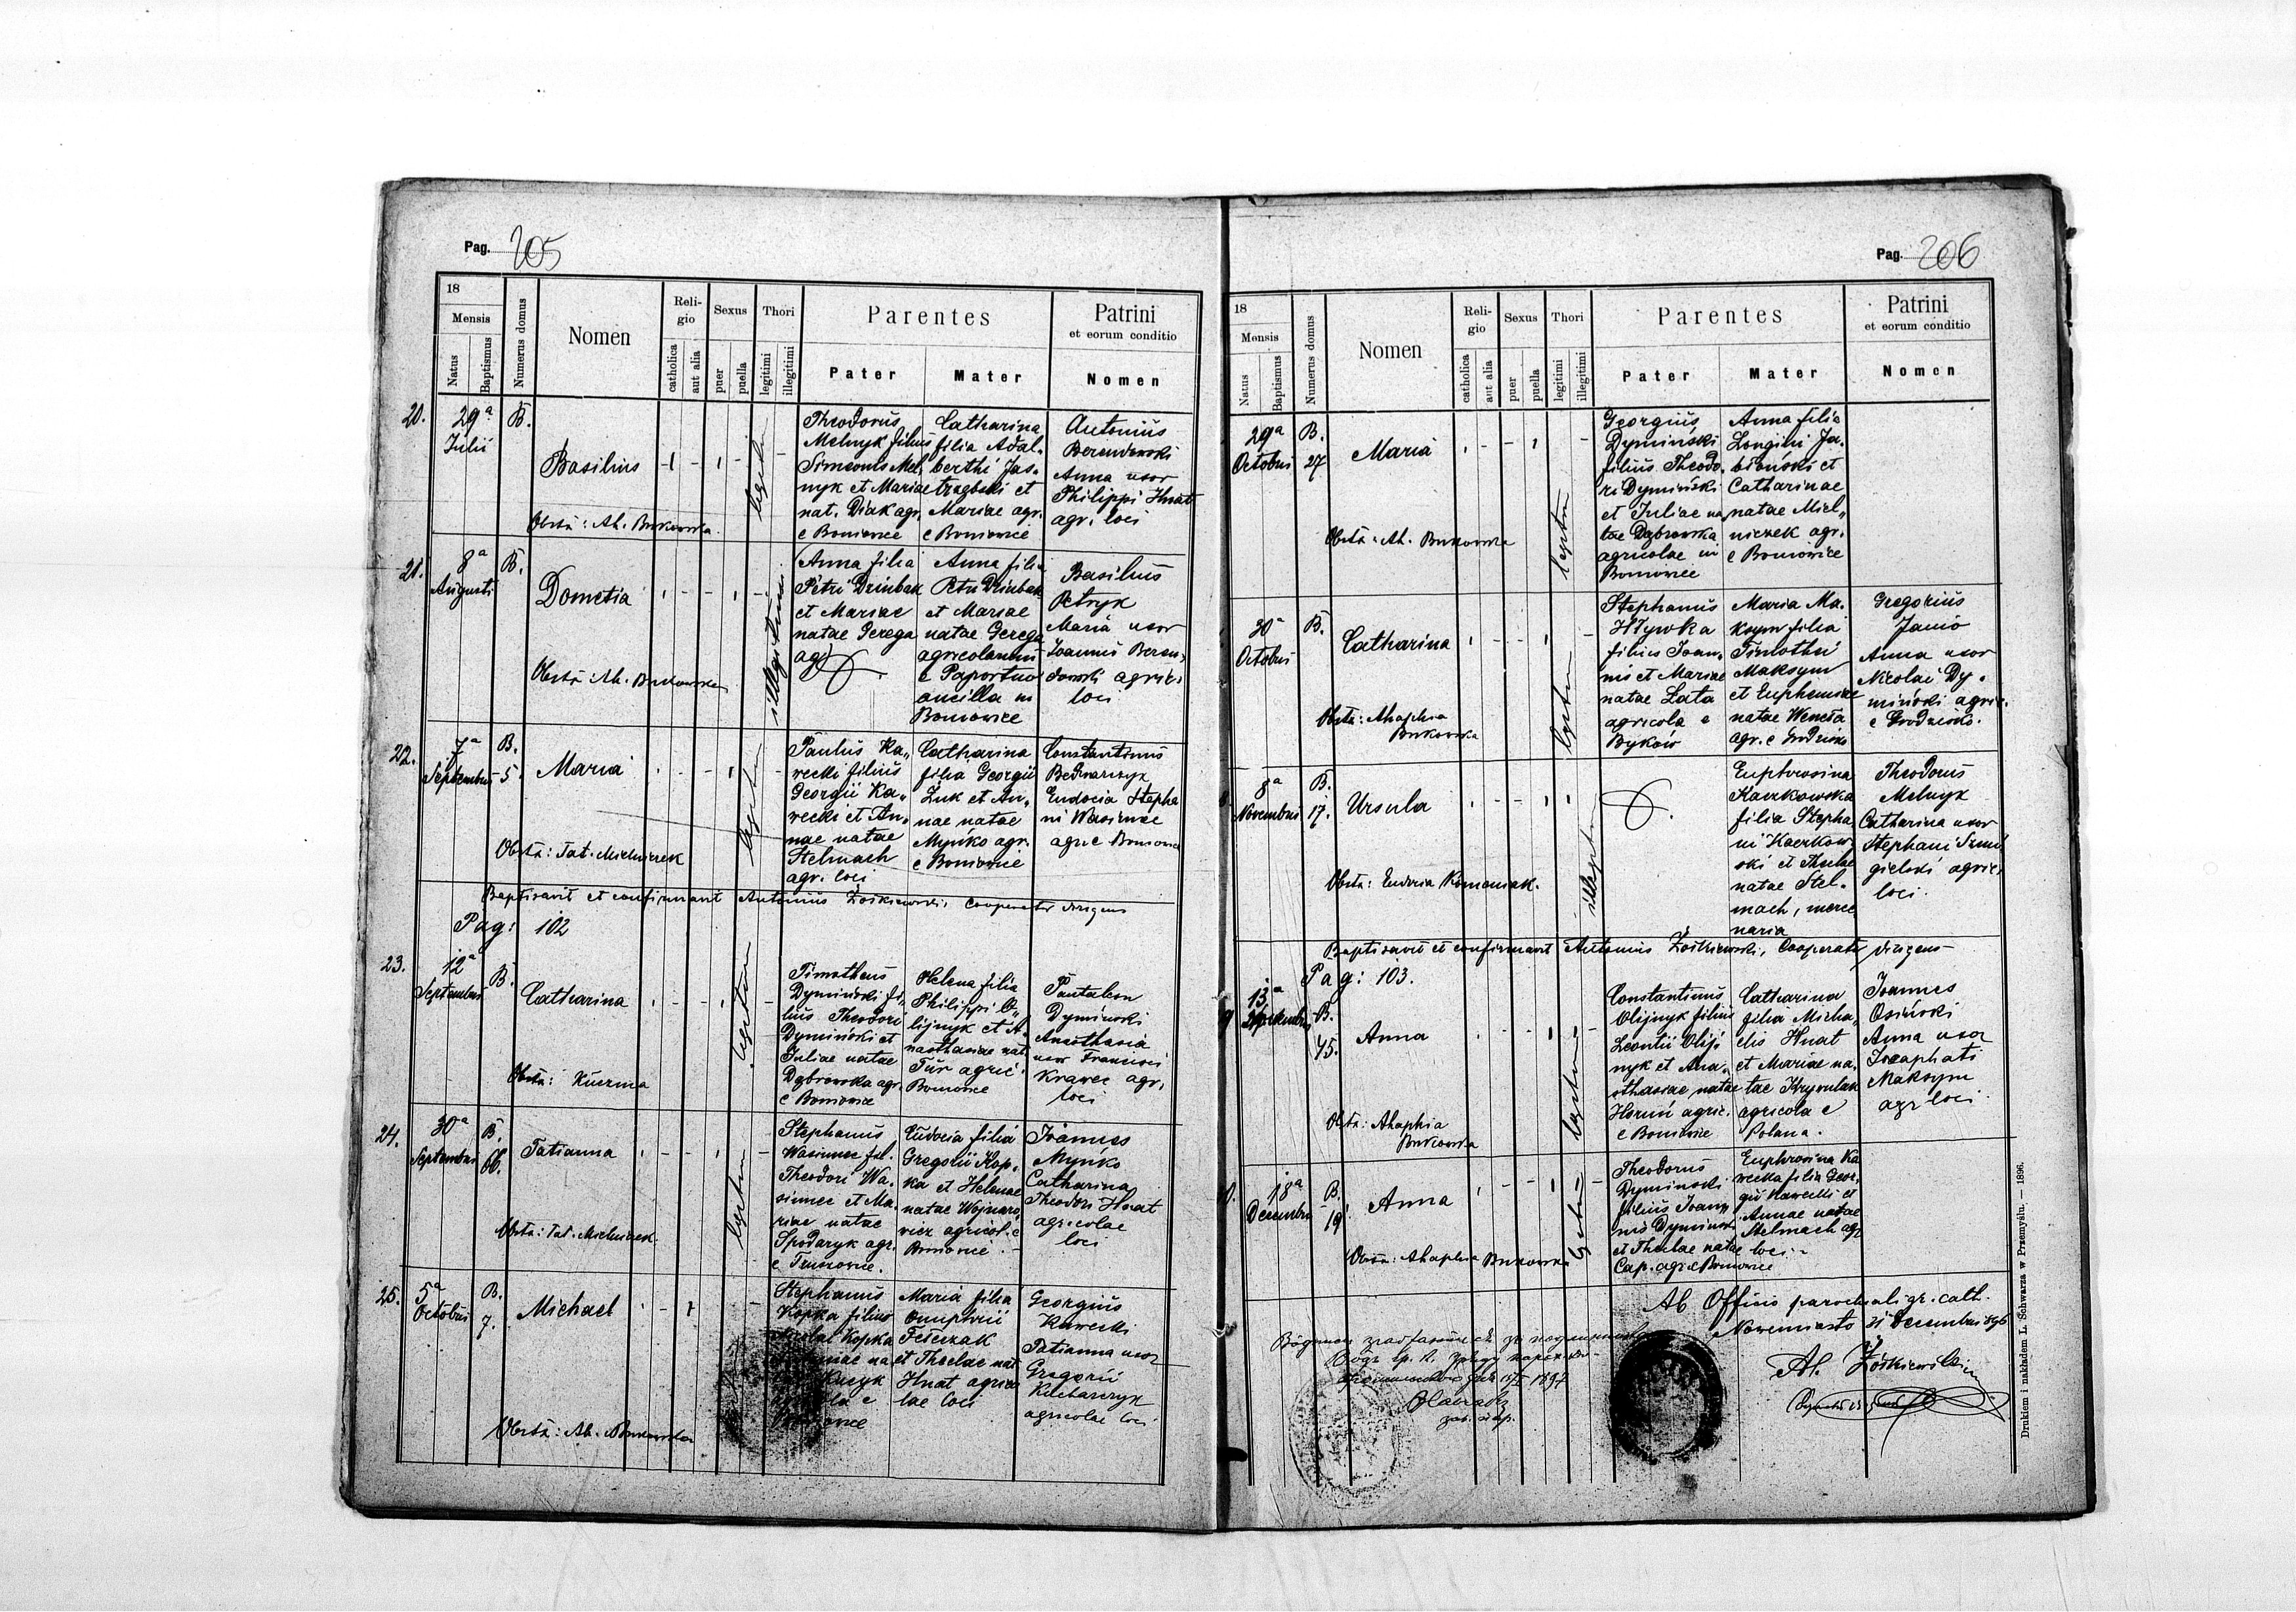 Pag. 205
18
Mensis
Natus
Baptismus
Numerus domus
Nomen
Reli-
gio
catholica
aut alia
Sexus
puer
puella
Thori
legitimi
illegitimi
Parentes
Pater
Mater
Patrini
et eorum conditio
Nomen
20.
29a
Julii
B.
Basilius
Obstā: Ah. Bukowska
Theodorus
Melnyk filius
Simeonis Mel,
nyk et Mariae
nat. Diak agr.
e Boniowice
Catharina
filia Adal„
berthi Jas„
trzębski et
Mariae agr.
e Boniowice
Antonius
Berendowski
Anna uxor
Philippi Hnat
agr. loci
21.
8a
Augusti
B.
Dometia
Obstā: Ah. Bukowska
illegitim
Anna filia
Petri Dziubak
et Mariae
natae Gerega
agr
Anna filia
Petri Dziubak
et Mariae
natae Gerega
agricolarum
e Paportno
ancilla in
Boniowice
Basilius
Petryk
Maria uxor
Joannis Beren„
dowski agric.
loci
22.
7a
Septembris
B.
5.
Maria
Obstā: Tat. Mielniczek
Paulus Ka„
wecki filius
Georgii Ka„
wecki et An„
nae natae
Stelmach
agr. loci
Catharina
filia Georgii
Żuk et An„
nae natae
Myńko agr.
e Boniowice
Constantinus
Bednarczyk
Eudocia Stepha
ni Wasiunec
agr. e Boniowice
Baptisavit et confirmavit Antonius Żółkiewski, Cooperator dirigens
Pag: 102
23.
12a
Septembris
B.
Catharina
Obstā: Kuzma
Timotheus
Dymiński fi„
lius Theodori
Dymiński et
Juliae natae
Dąbrowska agr.
e Boniowice
Helena filia
Philippi O„
lijnyk et A„
nasthasiae nat.
Tur agric.
Boniowice
Pantaleon
Dymiński
Anasthasia
uxor Francisci
Krawec agr.
loci
24.
30a
Septembris
B.
66.
Tatianna
Obstā: Tat. Mielniczek
Stephanus
Wasiunec fil.
Theodori Wa„
siunec et Ma„
riae natae
Spodaryk agr.
e Truszowice.
Eudocia filia
Gregorii Kop„
ka et Helenae
natae Wojnaro„
wicz agricol. e
Boniowice
Joannes
Myńko
Catharina
Theodori Hnat
agricolae
loci
25.
5a
Octobris
B.
7.
Michael
Obstā: Ah. Bukowska
Stephanus
Kopka filius
Nicolai Kopka
Maria filia
Onuphrii
Feśczak
et Theclae nat
Hnat agrico
lae loci
Georgius
Kawecki
Tatianna uxor
Gregorii
Kucharczyk
agricolae loci
Pag. 206
18
Mensis
Natus
Baptismus
Numerus domus
Nomen
Reli-
gio
catholica
aut alia
Sexus
puer
puella
Thori
legitimi
illegitimi
Parentes
Pater
Mater
Patrini
et eorum conditio
Nomen
29a
Octobris
B.
27
Maria
Obstā: Ah. Bukowska
Georgius
Dymiński
filius Theodo„
ri Dymiński
et Juliae na
tae Dąbrowska
agricolae in
Boniowice
Anna filia
Longini Ja„
błoński et
Catharinae
natae Miel„
niczek agr.
e Boniowice
30a
Octobris
B.
Catharina
Obstā: Ahaphia
Bukowska
Stephanus
Hływka
filius Joan„
nis et Mariae
natae Łata
agricola e
Byków
Maria Ma„
ksym filia
Timothei
Maksym
et Euphemiae
natae Weneta
agr. e Grodzisko
Gregorius
Janio
Anna uxor
Nicolai Dy„
miński agric.
e Grodzisko.
8a
Novembris
B.
17.
Ursula
Obstā: Eudocia Romaniak.
Euphrosina
Kaczkowska
filia Stepha„
ni Kaczkow
ski et Theclae
natae Stel„
mach, merce
naria
Theodorus
Melnyk
Catharina uxor
Stephani Szmi
gielski agric.
loci.
Baptisavit et confirmavit Antonius Żółkiewski, Cooperator dirigens
Pag: 103.
13a
B.
45.
Anna
Obstā: Ahaphia
Bukowska
Constantinus
Olijnyk filius
Leontii Olij„
nyk et Ana„
sthasiae natae
agric.
e Boniowice
Catharina
filia Micha„
elis Hnat
et Mariae na„
tae Krywulak
agricola e
Polana.
Joannes
Osiński
Anna uxor
Josaphati
Maksym
agr loci.
18a
Decembris
B.
19.
Anna
Obstā: Ahaphia Bukowska
Theodorus
Dymiński
filius Joan„
nis Dymiński
et Theclae natae
Cap. agr. e Boniowice
Euphrosina Ka
wecka filia Geor„
gii Kawecki et
Annae natae
Stelmach agr
loci.
Ab Officio parochiali gr. cath.
Novemiasto 31 Decembris 1896
Ah. Żółkiewski
1897
Drukiem i nakładem L. Schwarza w Przemyślu. — 1896.